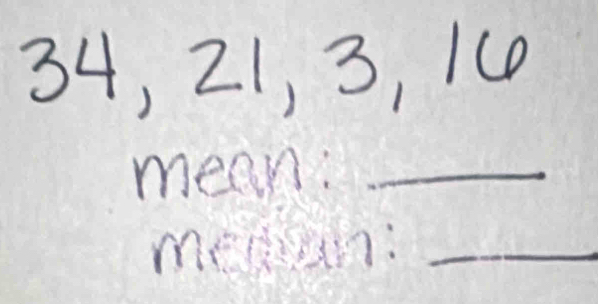 34, 21, 3, 16
mean: ____
median: ____